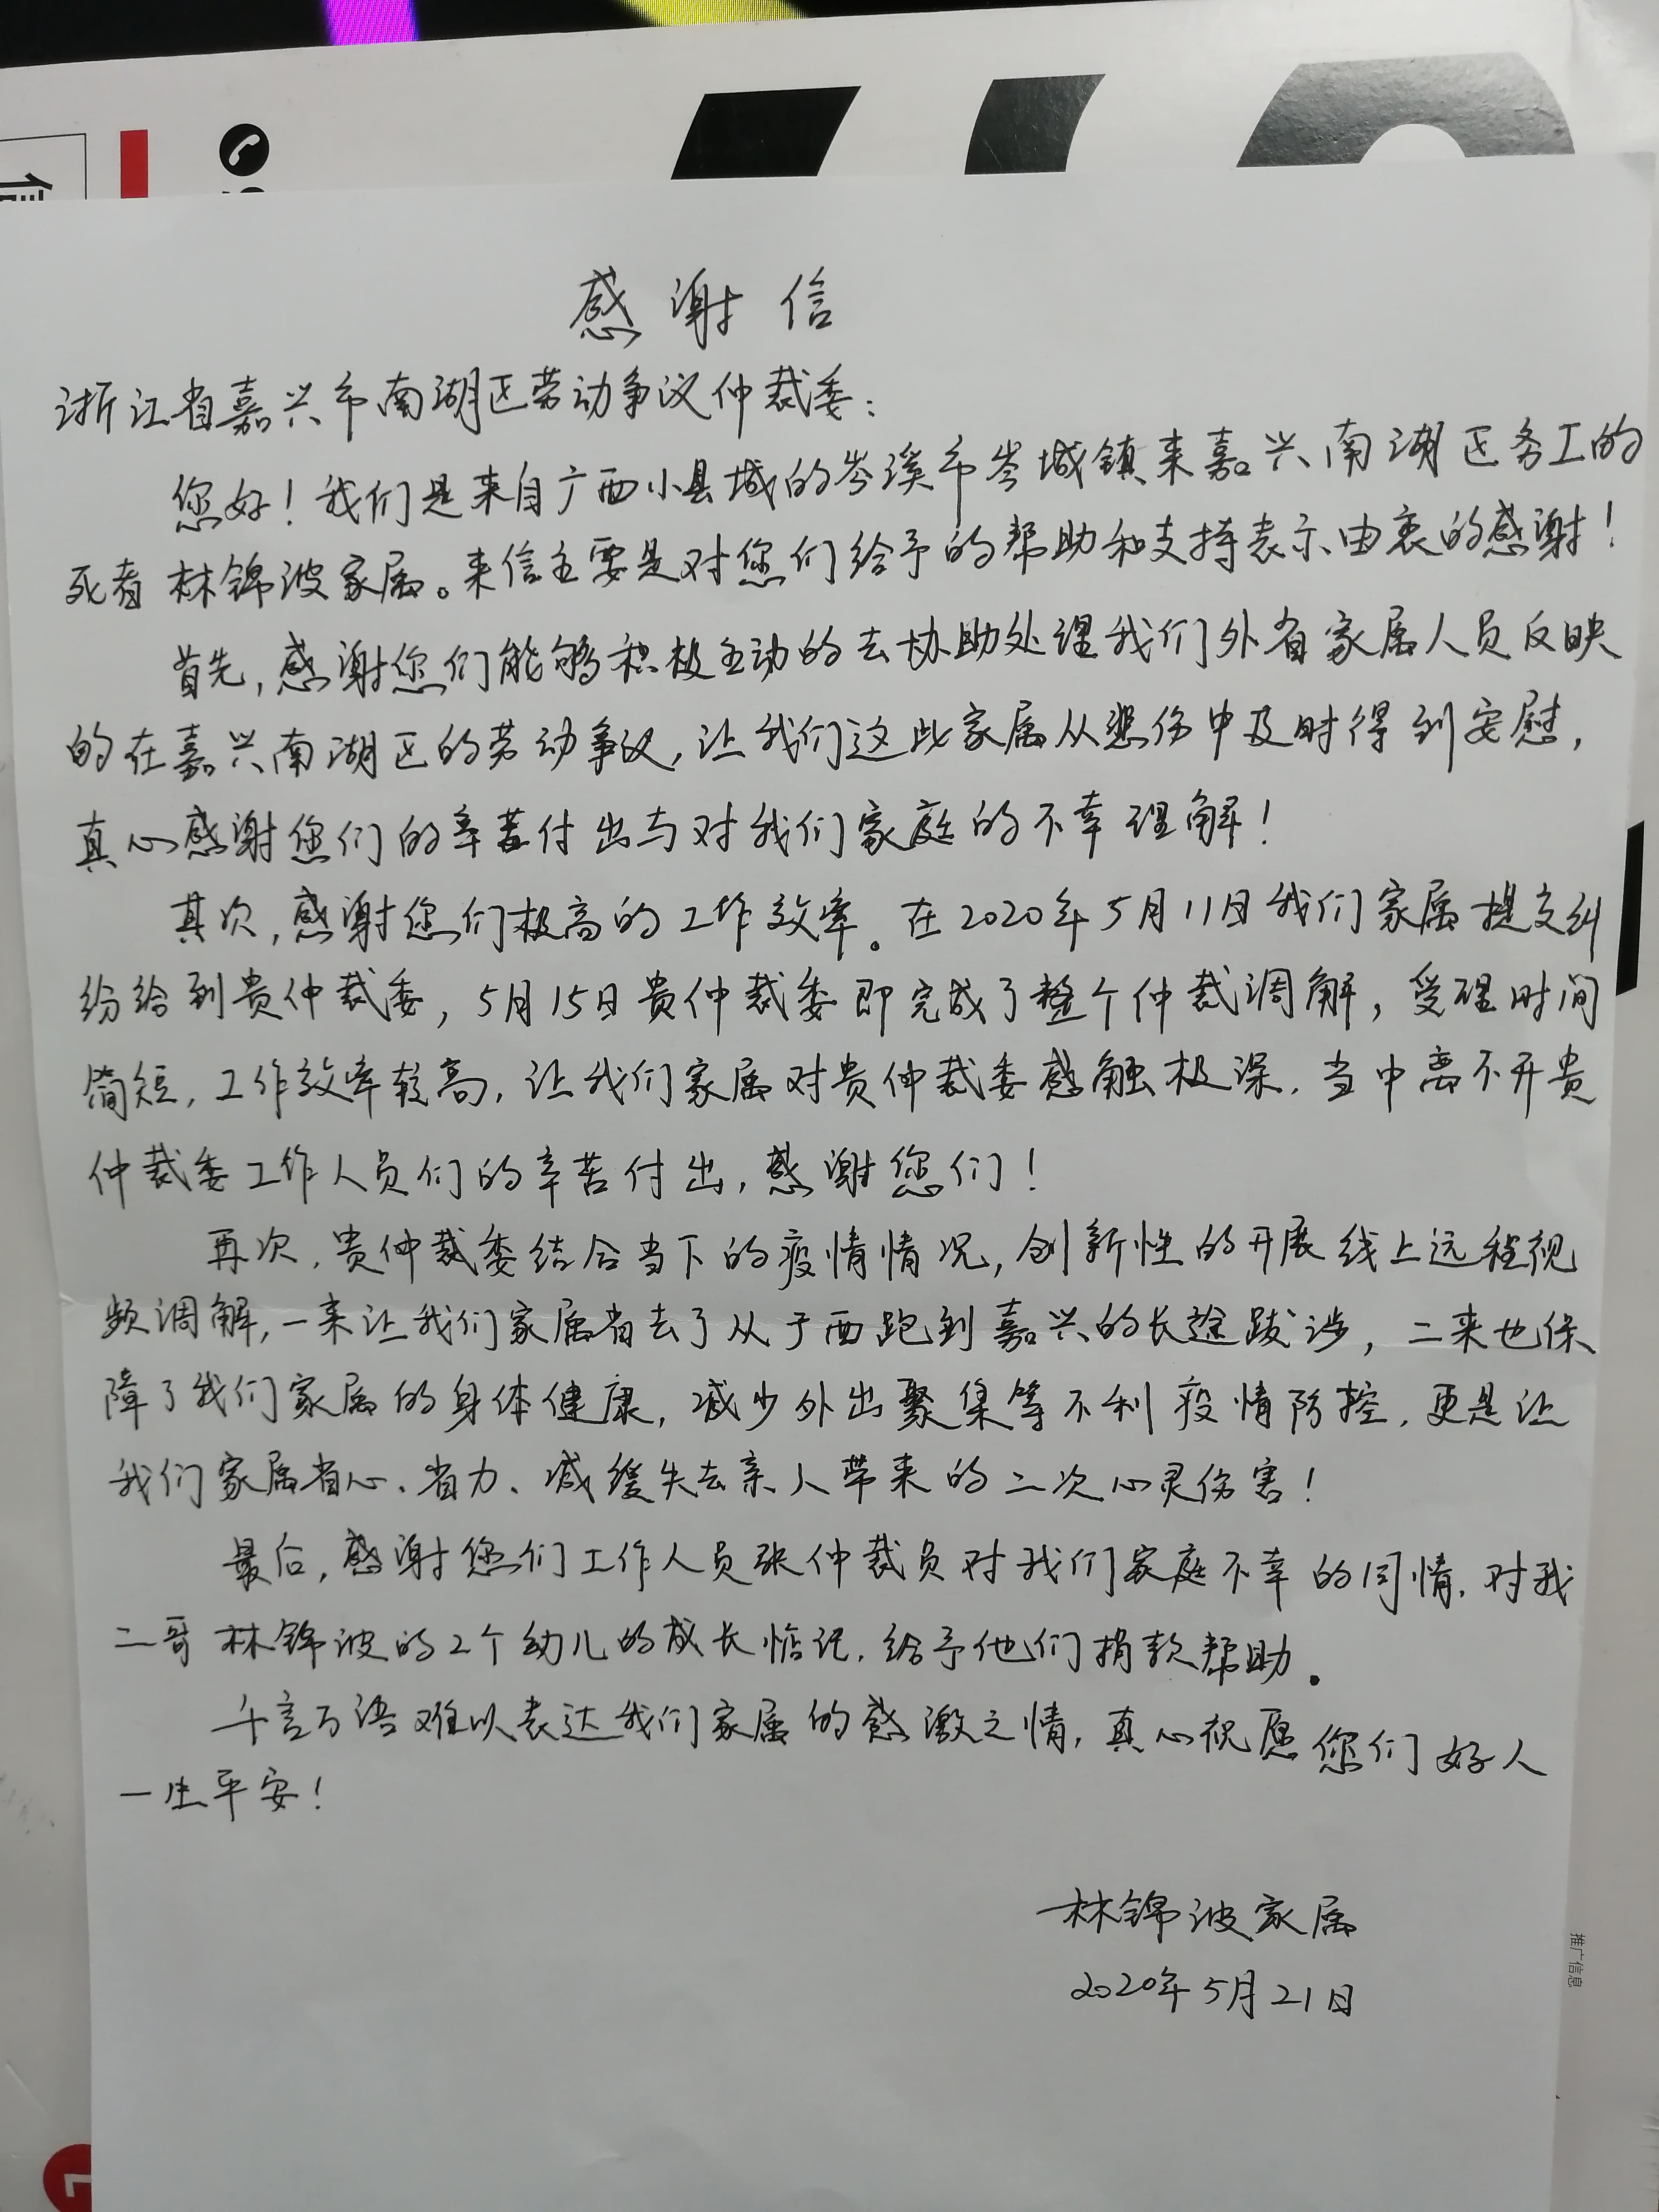 感谢信
浙江省嘉兴市南湖区劳动争议仲裁委：
您好！我们是来自广西小县城的岑溪市岑城镇来嘉兴南湖区务工的
死者林锦波家属。来信主要是对您们给予的帮助和支持表示由衷的感谢！
首先，感谢您们能够积极主动的去协助处理我们外省家属人员反映
的在嘉兴南湖区的劳动争议，让我们这些家属从悲伤中及时得到安慰，
真心感谢您们的辛苦付出与对我们家庭的不幸理解！
其次，感谢您们极高的工作效率。在2020年5月11日我们家属提交纠
纷给到贵仲裁委，5月15日贵仲裁委即完成了整个仲裁调解，受理时间
简短，工作效率较高，让我们家属对贵仲裁委感触极深，当中离不开贵
仲裁委工作人员们的辛苦付出，感谢您们！
再次，贵仲裁委结合当下的疫情情况，创新性的开展线上远程视
频调解，一来让我们家属省去了从广西跑到嘉兴的长途跋涉，二来也保
障了我们家属的身体健康，减少外出聚集等不利疫情防控，更是让
我们家属省心、省力、减缓失去亲人带来的二次心灵伤害！
最后，感谢您们工作人员张仲裁员对我们家庭不幸的同情，对我
二哥林锦波的2个幼儿的成长惦记，给予他们捐款帮助。
千言万语难以表达我们家属的感激之情，真心祝愿您们好人
一生平安！
林锦波家属
2020年5月21日
推广信息